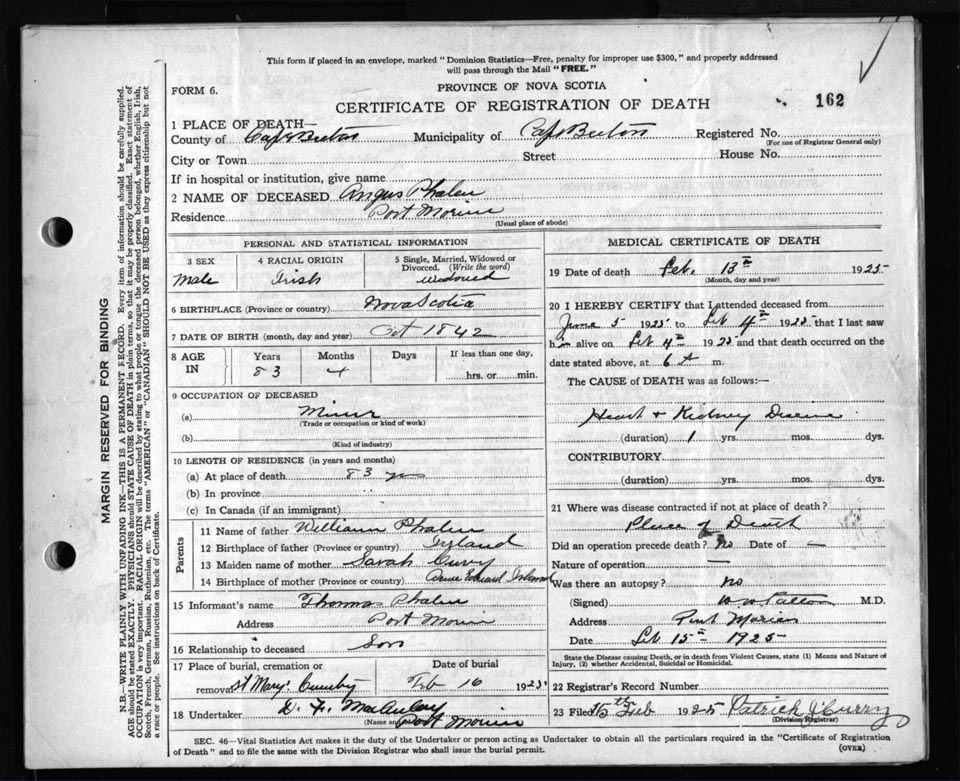 This form if placed in an envelope, marked "Dominion Statistics—Free, penalty for improper use $300," and properly addressed
will pass through the Mail "FREE."
FORM 6.
PROVINCE OF NOVA SCOTIA
CERTIFICATE OF REGISTRATION OF DEATH
162
1 PLACE OF DEATH—
County of Cape Breton Municipality of Cape Breton Registered No.
(For use of Registrar General only)
City or Town Street House No.
If in hospital or institution, give name
2 NAME OF DECEASED Angus Phalen
Residence Port Morien
(Usual place of abode)
PERSONAL AND STATISTICAL INFORMATION
3 SEX 4 RACIAL ORIGIN 5 Single, Married, Widowed or Divorced. (Write the word)
Male Irish widowed
6 BIRTHPLACE (Province or country) Nova Scotia
7 DATE OF BIRTH (month, day and year) Oct 1842
8 AGE IN Years Months Days If less than one day,
83 4 hrs. or min.
9 OCCUPATION OF DECEASED
(a) Miner
(Trade or occupation or kind of work)
(b)
(Kind of industry)
10 LENGTH OF RESIDENCE (in years and months)
(a) At place of death 83 yrs
(b) In province "
(c) In Canada (if an immigrant)
Parents
11 Name of father William Phalen
12 Birthplace of father (Province or country) Ireland
13 Maiden name of mother Sarah Curry
14 Birthplace of mother (Province or country) Prince Edward Island
15 Informant's name Thomas Phalen
Address Port Morien
16 Relationship to deceased Son
17 Place of burial, cremation or removal St Mary's Cemetery Date of burial Feb 16 1925
18 Undertaker D. J.
(Name and address) Port Morien
MEDICAL CERTIFICATE OF DEATH
19 Date of death Feb. 13th 1925
(Month, day and year)
20 I HEREBY CERTIFY that I attended deceased from
June 5 1925 to Feb 4th 1925 that I last saw
him alive on Feb 4th 1925 and that death occurred on the
date stated above, at 6 A m.
The CAUSE of DEATH was as follows:—
Heart & Kidney Disease
(duration) 1 yrs. mos. dys.
CONTRIBUTORY
(duration) yrs. mos. dys.
21 Where was disease contracted if not at place of death?
Place of Death
Did an operation precede death? No Date of —
Nature of operation —
Was there an autopsy? No
(Signed) Patton M.D.
Address Port Morien
Date Feb 15th 1925
State the Disease causing Death, or in death from Violent Causes, state (1) Means and Nature of
Injury, (2) whether Accidental, Suicidal or Homicidal.
22 Registrar's Record Number
23 Filed 16th Feb 1925 Patrick J Curry
(Division Registrar)
SEC. 46—Vital Statistics Act makes it the duty of the Undertaker or person acting as Undertaker to obtain all the particulars required in the "Certificate of Registration
of Death" and to file the same with the Division Registrar who shall issue the burial permit.
(OVER)
MARGIN RESERVED FOR BINDING
N.B.—WRITE PLAINLY WITH UNFADING INK—THIS IS A PERMANENT RECORD. Every item of information should be carefully supplied.
AGE should be stated EXACTLY. PHYSICIANS should STATE CAUSE OF DEATH in plain terms, so that it may be properly classified. Exact statement of
OCCUPATION is very important. RACIAL ORIGIN will be described by stating to what people or tongue the deceased person belonged, whether English, Irish,
Scotch, French, German, Russian, Ruthenian, etc. The terms "AMERICAN" or "CANADIAN" SHOULD NOT BE USED as they express citizenship but not
a race or people. See instructions on back of Certificate.